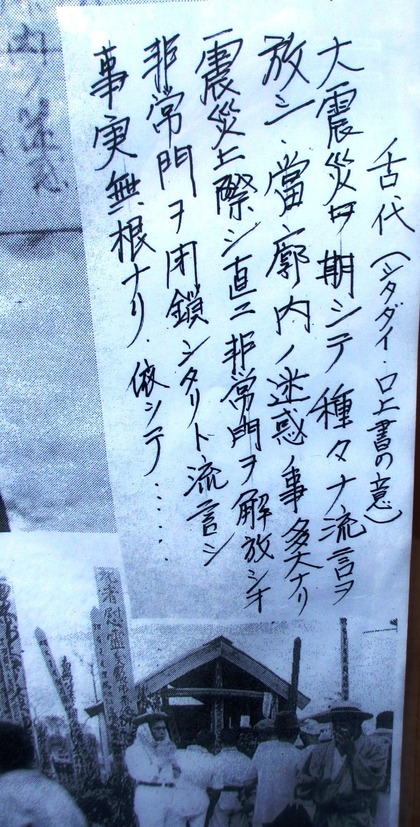 舌代(シタダイ・口上書の意)
大震災ヲ期シテ種々ナ流言ヲ
放シ、當廓内ノ迷惑ノ事多大ナリ
震災ニ際シ直ニ非常門ヲ解放シ
非常門ヲ閉鎖シタリト流言シ
事実無根ナリ、依シテ・・・・・
者慰霊